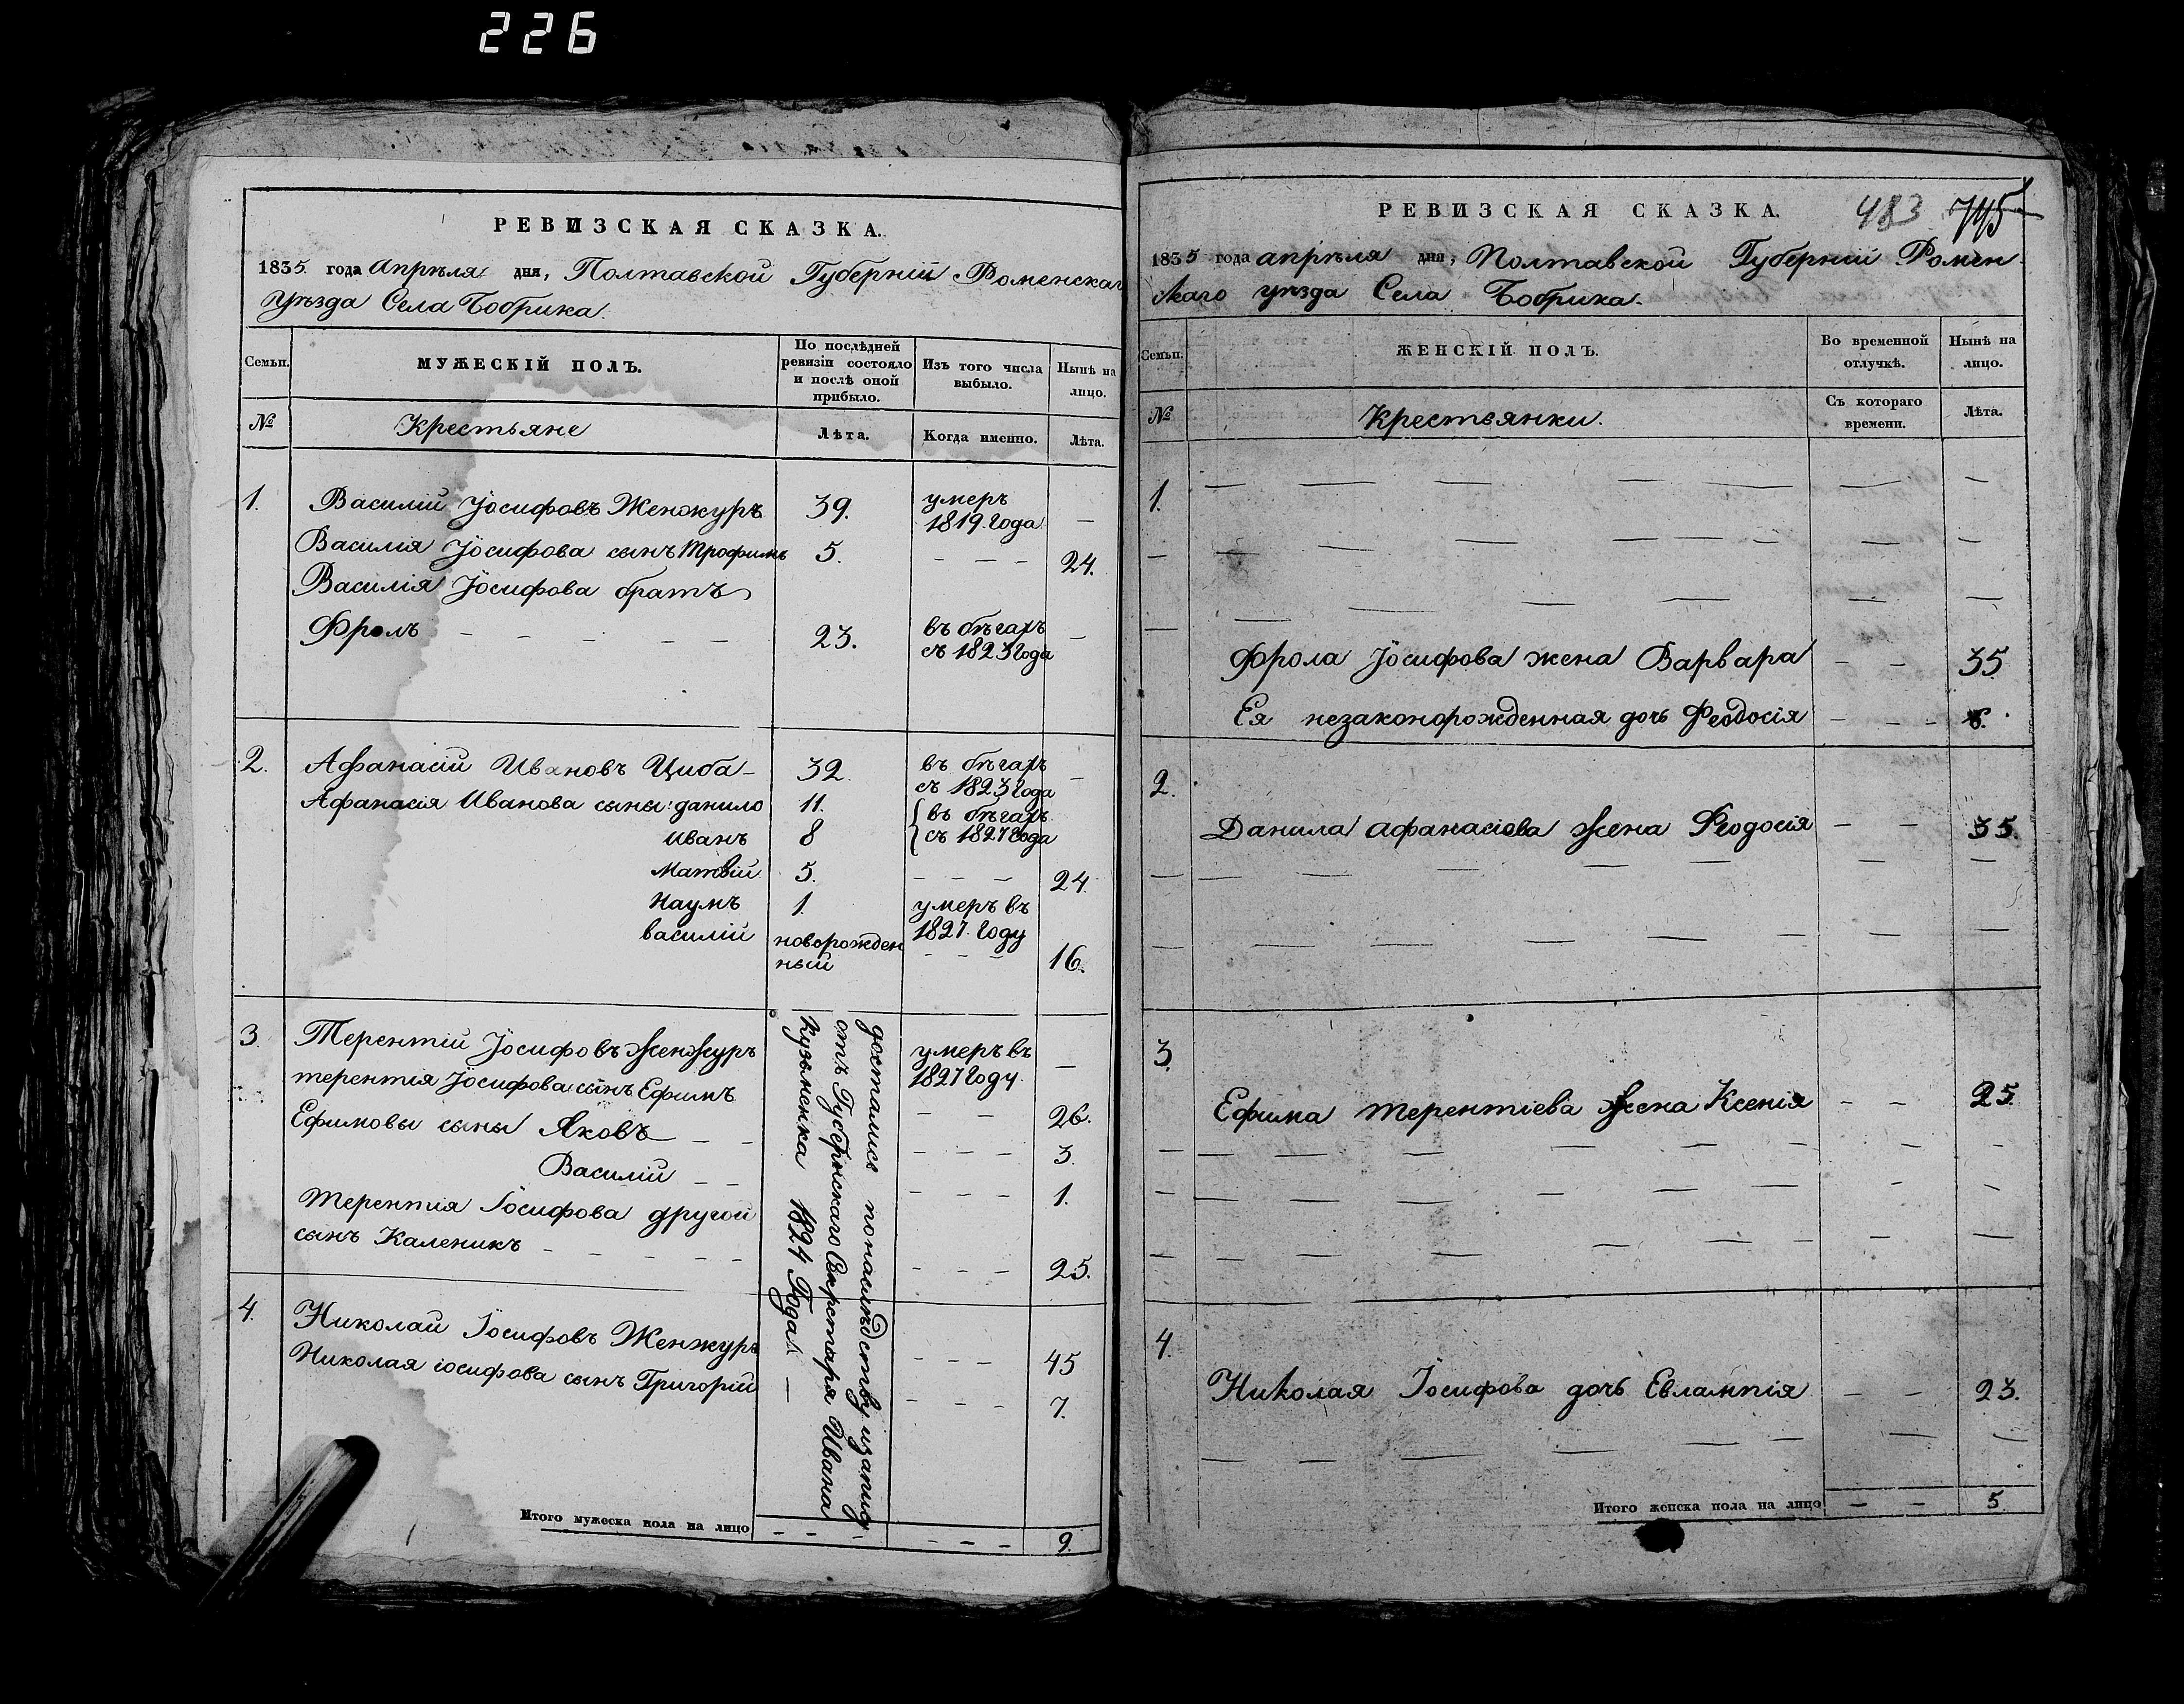 226
РЕВИЗСКАЯ СКАЗКА.
1835. года Апрѣля дня, Полтавской Губерніи Роменскаго
уѣзда Села Бобрика.
Семьи.
МУЖЕСКІЙ ПОЛЪ.
По послѣдней
ревизіи состояло
и послѣ оной
прибыло.
Изъ того числа
выбыло.
Нынѣ на
лицо.
№
Крестьяне
Лѣта.
Когда именно.
Лѣта.
1. Василій Іосифовъ Женжуръ 39. умеръ
1819. Года —
Василія Іосифова сынъ Трофимъ 5. — — — 24.
Василія Іосифова братъ
Фролъ — — — — — 23. въ бѣгахъ
съ 1823 Года —
2. Афанасій Ивановъ Циба — 32. въ бѣгахъ
съ 1823 Года —
Афанасія Иванова сыны: данило 11. въ бѣгахъ
Иванъ 8 съ 1827 Года
Матвій 5. — — — 24.
Наумъ 1. умеръ въ
1827. Году
василій новорожден
ный — — — 16.
3. Терентій Іосифовъ Женжуръ умеръ въ
1827 Году. —
терентія Іосифова сынъ Ефимъ — — 26.
Ефимовы сыны Яковъ — — — — — 3.
Василій — — — — — 1.
Терентія Іосифова другой
сынъ Каленикъ — — — — — — — — 25.
4. Николай Іосифовъ Женжуръ — — — 45
Николая іосифова сынъ Григорій — — — 7.
достались по наслѣдству
отъ Губернскаго Секретаря Ивана
Кузьменка 1824 Года —
Итого мужеска пола на лицо — — — — — — 9.
РЕВИЗСКАЯ СКАЗКА.
483 745
1835 года апрѣля дня, Полтавской Губерніи Ромен-
скаго уѣзда Села Бобрика.
Семьи.
ЖЕНСКІЙ ПОЛЪ.
Во временной
отлучкѣ.
Нынѣ на
лицо.
№
Крестьянки.
Съ котораго
времени.
Лѣта.
1.
Фрола Іосифова жена Варвара — — 35
Ея незаконорожденная дочь Феодосія — — — 6.
2.
Данила Афанасіева жена Феодосія — — 35.
3.
Ефима терентіева жена Ксенія — — 25.
4.
Николая Іосифова дочь Евлампія — — 23.
Итого женска пола на лицо — — 5